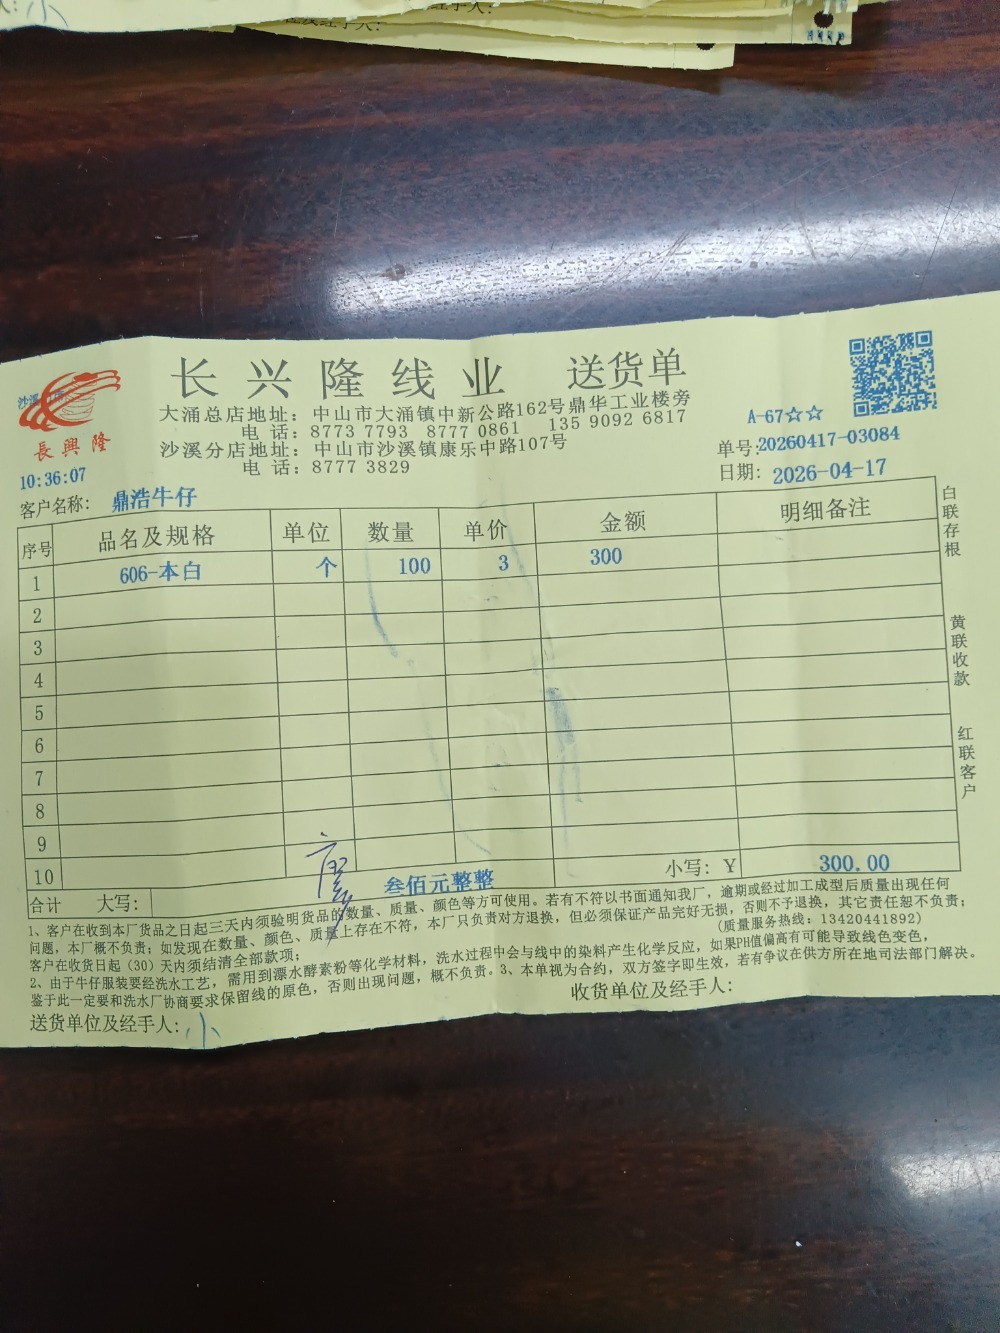 长兴隆线业 送货单
大涌总店地址：中山市大涌镇中新公路162号鼎华工业楼旁
电 话：8773 7793 8777 0861 135 9092 6817
沙溪分店地址：中山市沙溪镇康乐中路107号
电 话：8777 3829
長興隆
10:36:07
A-67☆☆
单号:20260417-03084
日期：2026-04-17
客户名称：鼎浩牛仔
序号 品名及规格 单位 数量 单价 金额 明细备注
1 606-本白 个 100 3 300
2
3
4
5
6
7
8
9
10
合计 大写： 叁佰元整整 小写：￥ 300.00
白联存根
黄联收款
红联客户
1、客户在收到本厂货品之日起三天内须验明货品的数量、质量、颜色等方可使用。若有不符以书面通知我厂，逾期或经过加工成型后质量出现任何
问题，本厂概不负责；如发现在数量、颜色、质量上存在不符，本厂只负责对方退换，但必须保证产品完好无损，否则不予退换，其它责任恕不负责；
客户在收货日起（30）天内须结清全部款项； (质量服务热线：13420441892)
2、由于牛仔服装要经洗水工艺，需用到漂水酵素粉等化学材料，洗水过程中会与线中的染料产生化学反应，如果PH值偏高有可能导致线色变色，
鉴于此一定要和洗水厂协商要求保留线的原色，否则出现问题，概不负责。3、本单视为合约，双方签字即生效，若有争议在供方所在地司法部门解决。
送货单位及经手人：小
收货单位及经手人：